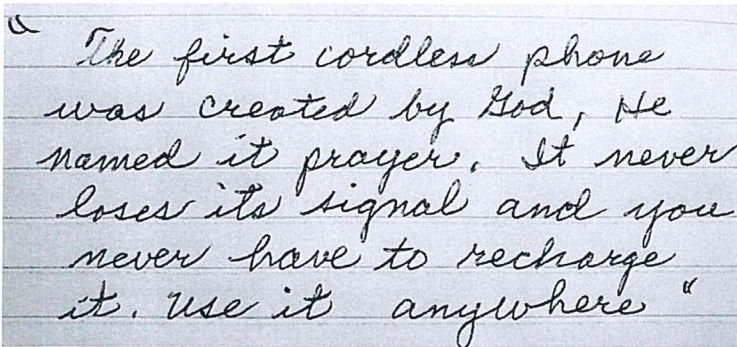 " The first cordless phone
was created by God, He
named it prayer. It never
loses its signal and you
never have to recharge
it. Use it anywhere "